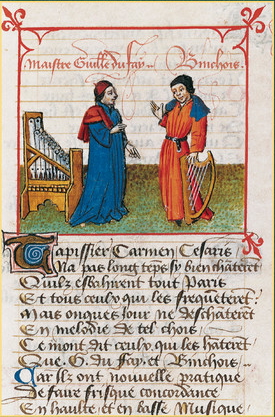 Maistre Guille du fay... Binchois.
Tapissier Carmen Cesaris
Na pas long teps sy bien chāterēt
Quilz esbahirent tout Paris
Et tous ceulx qui les frequēterēt:
Mais onques Jour ne deschāterēt
En melodie de tel chois
Ce mont dit ceulx qui les hāterēt
Que G. du fay et Binchois..
Car ilz ont nouvelle pratique
De faire frisque concordance
En haulte et en basse Musique